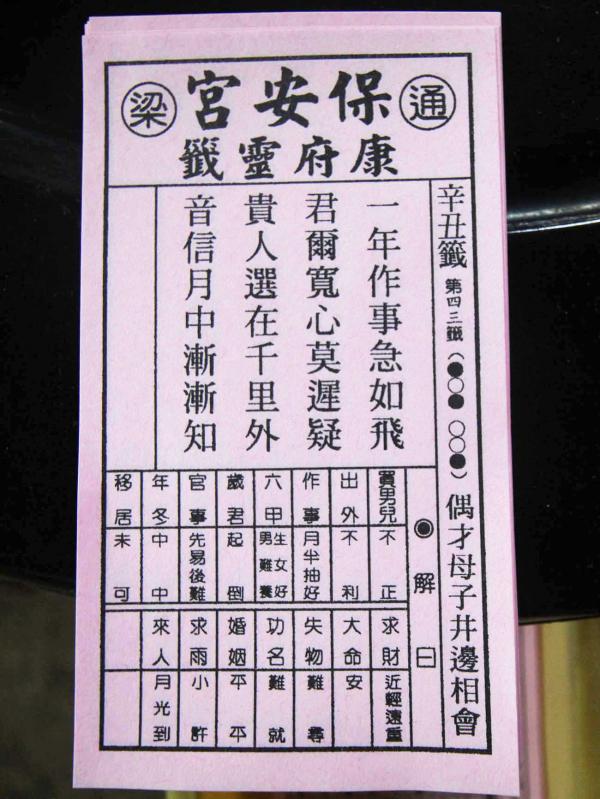 通 保安宮 梁
康府靈籤
辛丑籤 第四三籤（●○● ○○●）偶才母子井邊相會
一年作事急如飛
君爾寬心莫遲疑
貴人選在千里外
音信月中漸漸知
◉解曰
買男兒 不正
出外 不利
作事 月半抽好
六甲 生女好男難養
歲君 起倒
官事 先易後難
年冬 中中
移居 未可
求財 近輕遠重
大命 安
失物 難尋
功名 難就
婚姻 平平
求雨 小許
來人 月光到